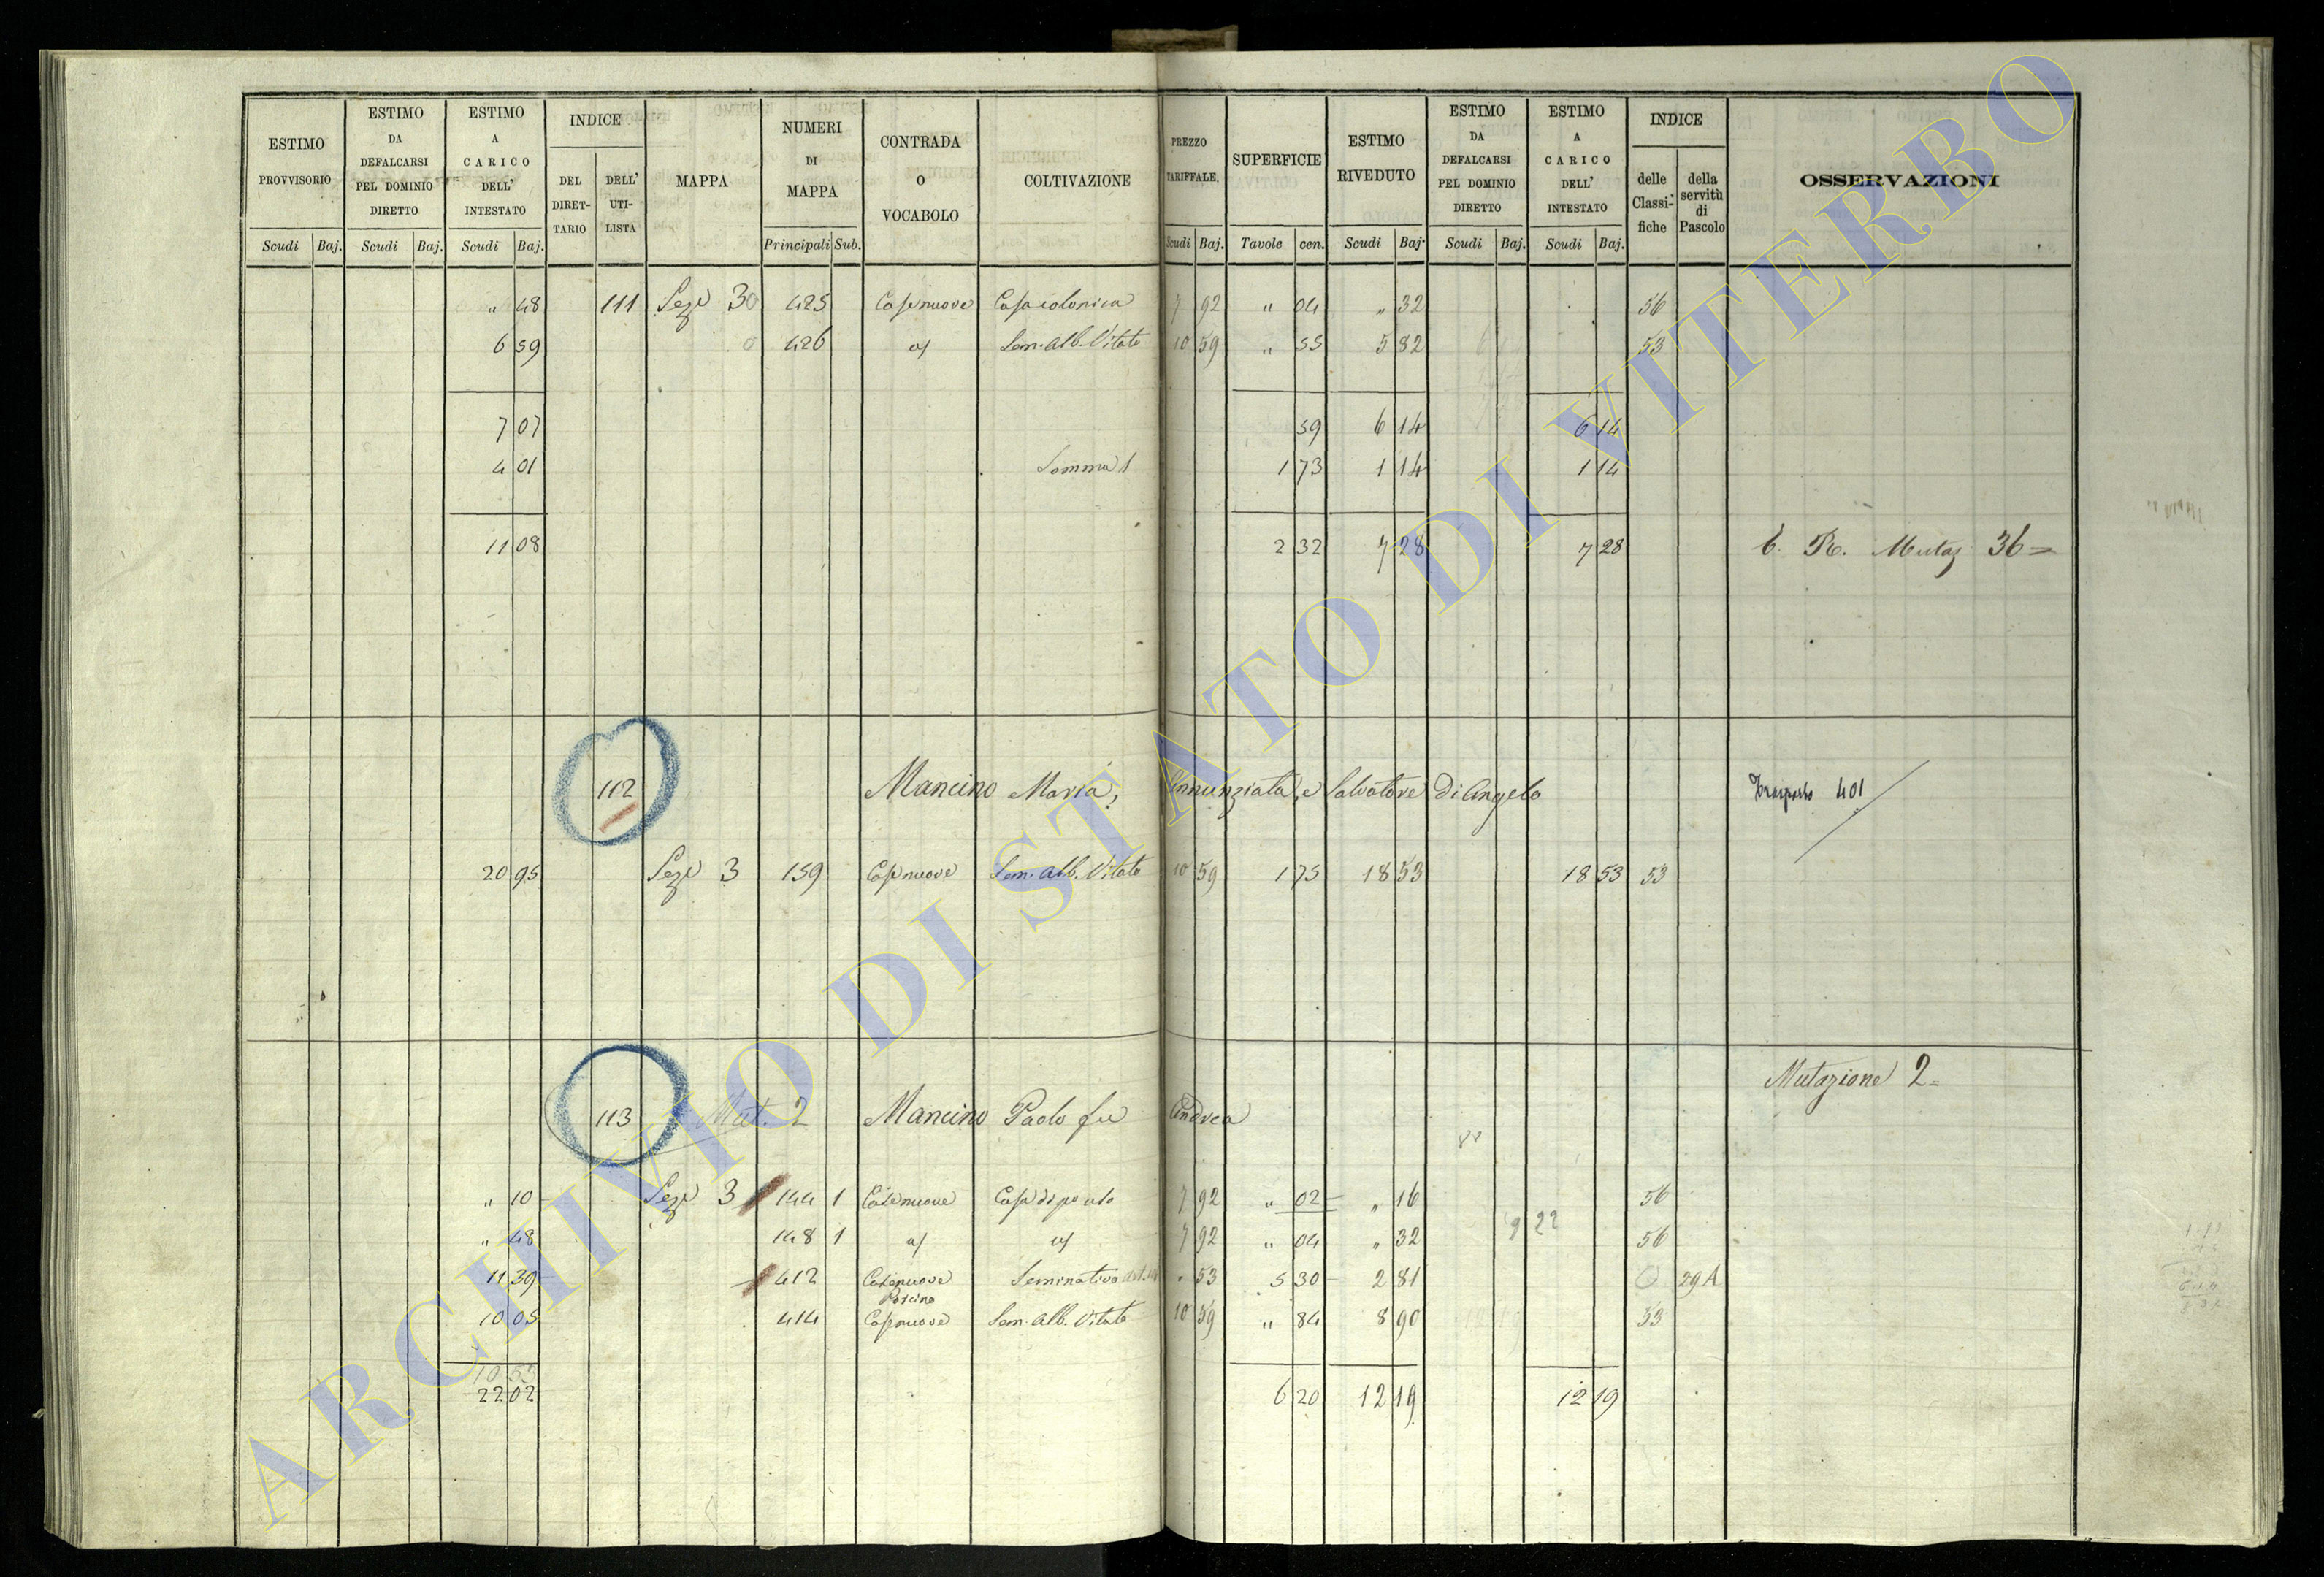 ESTIMO PROVVISORIO
ESTIMO DA DEFALCARSI PEL DOMINIO DIRETTO
ESTIMO A CARICO DELL' INTESTATO
INDICE
DEL DIRET- TARIO
DELL' UTI- LISTA
MAPPA
NUMERI DI MAPPA
CONTRADA O VOCABOLO
COLTIVAZIONE
PREZZO TARIFFALE.
SUPERFICIE
ESTIMO RIVEDUTO
ESTIMO DA DEFALCARSI PEL DOMINIO DIRETTO
ESTIMO A CARICO DELL' INTESTATO
INDICE
delle Classi- fiche
della servitù di Pascolo
OSSERVAZIONI
Scudi Baj. Scudi Baj. Scudi Baj. Principali Sub. Scudi Baj. Tavole cen. Scudi Baj. Scudi Baj. Scudi Baj.
" 48 111 Seze 30 425 Casenuove Casa colonica 7 92 " 04 " 32 56
6 59 426 a/ Sem. alb. Vitato 10 59 " 55 5 82 53
7 07 59 6 14 6 14
4 01 Somma 1 73 1 14 1 14
11 08 2 32 7 28 7 28 R. Mutaz 36=
112 Mancino Maria, Annunziata, e Salvatore di Angelo Trasporto 401
20 95 Seze 3 159 Casenuove Sem. alb. Vitato 10 59 1 75 18 53 18 53 53
Mutazione 2=
113 Mut. 2 Mancino Paolo fu Andrea
" 10 Seze 3 144 1 Casenuove 7 92 " 02 " 16 56
9 22
" 48 148 1 a/ a/ 7 92 " 04 " 32 56
11 39 412 Casenuove Seminativo " 53 5 30 2 81 29A
10 05 414 Casenuove Sem. alb. Vitato 10 59 " 84 8 90 53
10 53
22 02 6 20 12 19 12 19
ARCHIVIO DI STATO DI VITERBO